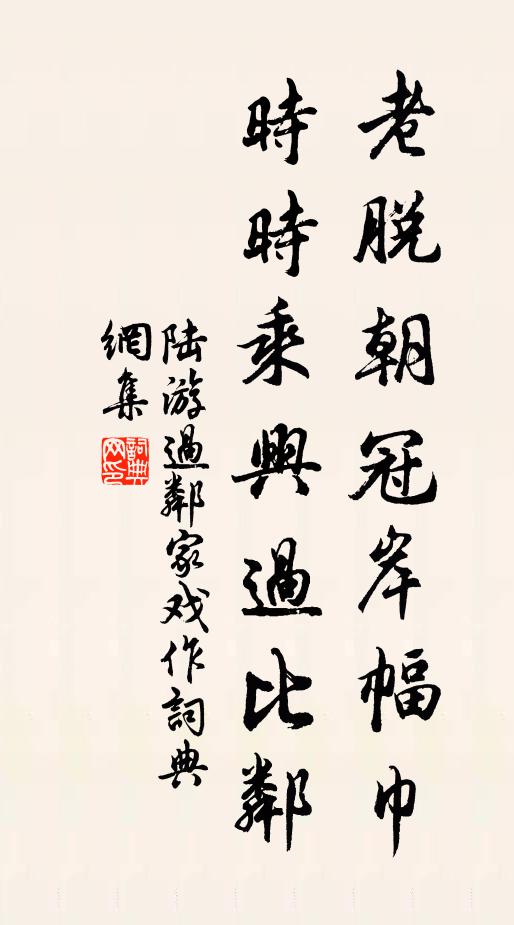 老脫朝冠岸幅巾
時時乘興過比鄰
陆游過鄰家戏作詞典
網集
詞典網印